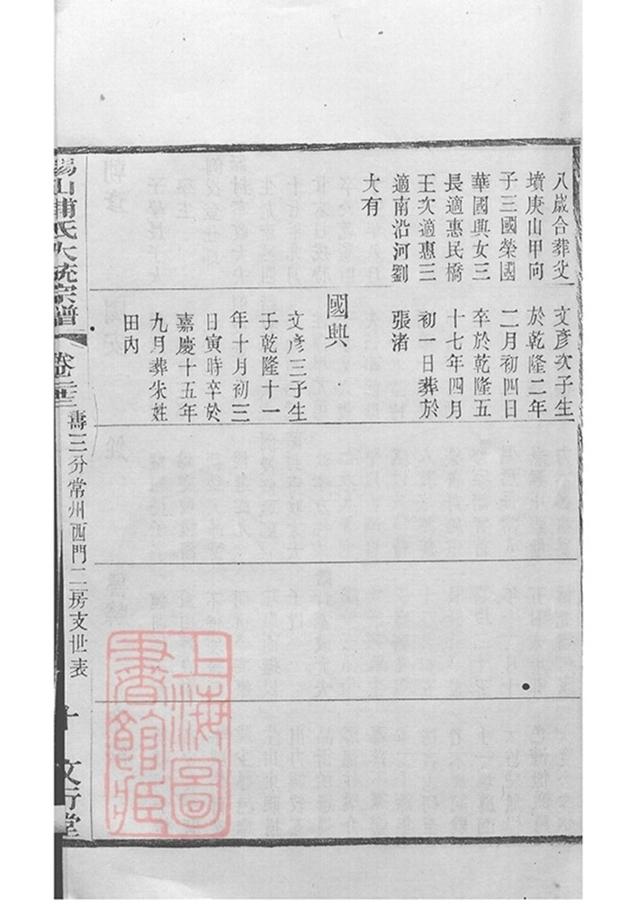 八歲合葬父
墳庚山甲向
子三國榮國
華國興女三
長適惠民橋
王次適惠三
適南沿河劉
大有
文彥次子生
於乾隆二年
二月初四日
卒於乾隆五
十七年四月
初一日葬於
張渚
國興
文彥三子生
子乾隆十一
年十月初三
日寅時卒於
嘉慶十五年
九月葬米姓
田內
錫山浦氏大統宗譜
壽三分常州西門二房支世表
十
文行堂
上海圖
書館藏